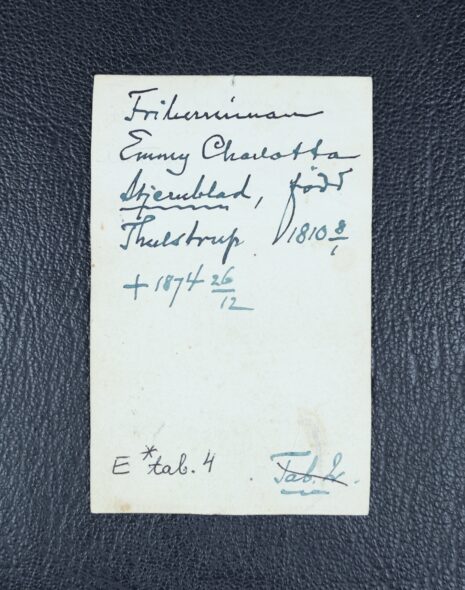 Friherrinnan
Emmy Charlotta
Stjernblad, född
Thulstrup 1810 8/1
+ 1874 26/12
E *tab. 4
Tab.